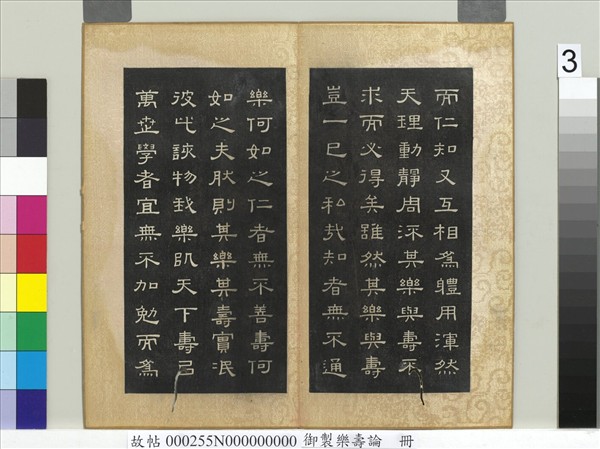 而仁知又互相為體用渾然
天理動靜周流其樂與壽不
求而必得矣雖然其樂與壽
豈一己之私哉知者無不通
樂何如之仁者無不善壽何
如之夫狀則其樂其壽實泯
彼此該物我樂以天下壽及
萬世學者宜無不加勉而為
3
故帖 000255N000000000 御製樂壽論 冊